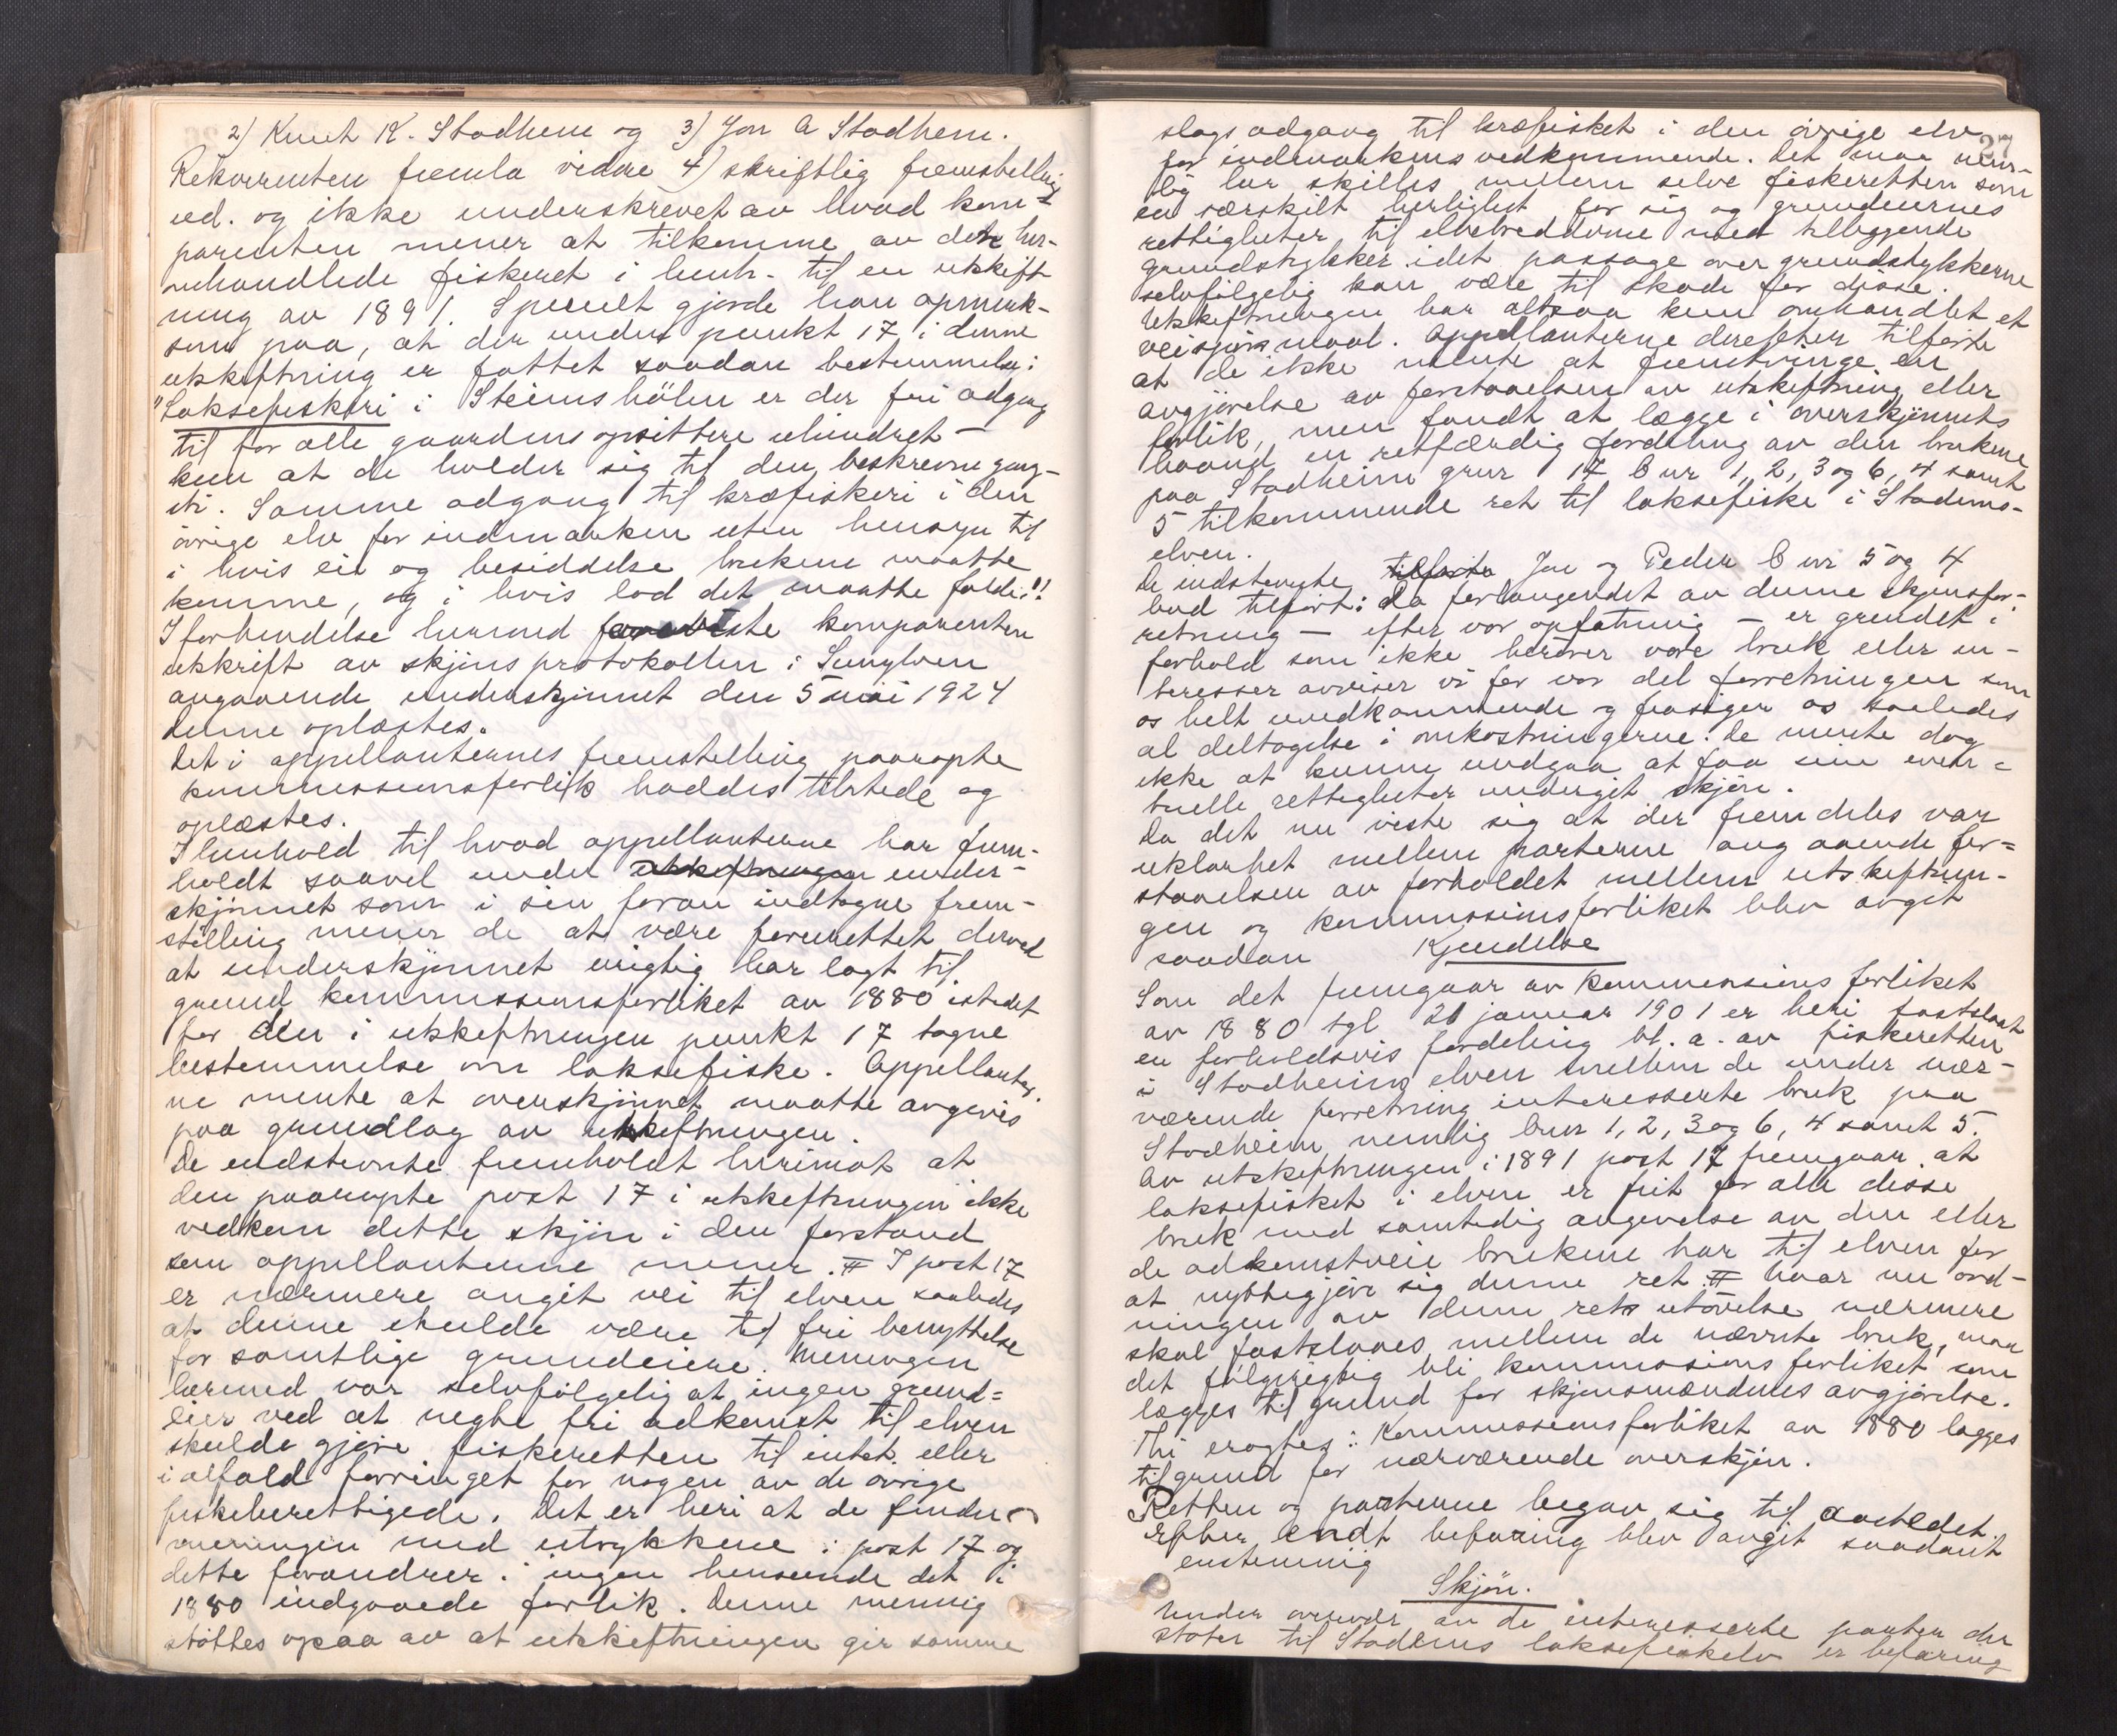 2) Knut K. Stadheim og 3) Jon A Stadheim.
Rekvirenten fremla videre 4) skriftlig fremstilling
ud. og ikke underskrevet av hvad kom-
parenten mener at tilkomme av det her-
omhandlede fiskeret i henh. til en utskift
ning av 1891. Specielt gjorde han opmerk-
som paa, at der under punkt 17 i denne
utskiftning er fattet saadan bestemmelse:
"Laksefiskeri i Steinshølen er der fri adgang
til for alle gaardens opsittere uhindret –
kun at de holder sig til den beskrevne gang-
sti. Samme adgang til kræfiskeri i den
øvrige elv for indmarken uten hensyn til
i hvis eie og besiddelse brukene maatte
komme, og i hvis lod det maatte falde."!
I forbindelse hermed foreviste komparenten
utskrift av skjønsprotokollen i Sunylven
angaaende underskjønnet den 5 mai 1924
denne oplæstes.
Det i appellanternes fremstilling paaropte
kommissionsforlik haddes tilstede og
oplæstes.
I henhold til hvad appellanterne har frem-
holdt saavel under utskiftningen under-
skjønnet som i sin foran indtagne frem-
stilling mener de at være forurettet derved
at underskjønnet urigtig har lagt til
grund kommissionsforliket av 1880 istedet
for den i utskiftningen punkt 17 tagne
bestemmelse om laksefiske. Appellanter-
ne mente at overskjønnet maatte avgives
paa grundlag av utskiftningen.
De indstevnte fremholdt herimot at
den paaropte post 17 i utskiftningen ikke
vedkom dette skjøn i den forstand
som appellanterne mener. # I post 17
er nærmere angit vei til elven saaledes
at denne skulde være til fri benyttelse
for samtlige grundeiere. Meningen
hermed var selvfølgelig at ingen grund-
eier ved at negte fri adkomst til elven
skulde gjøre fiskeretten til intet eller
i alfald forringet for nogen av de øvrige
fiskeberettigede. Det er heri at de finder
meningen med uttrykkene i post 17 og
dette forandrer i ingen henseende det i
1880 indgaaede forlik. Denne mening
støttes ogsaa av at utskiftningen gir samme
slags adgang til kræfisket i den øvrige elv
27
for indmarkens vedkommende. Det maa nem-
lig her skilles mellem selve fiskeretten som
en særskilt herlighet for sig og grundeiernes
rettigheter til elvebreddene med tilliggende
grundstykker idet passage over grundstykkerne
selvfølgelig kan være til skade for disse.
Utskiftningen har altsaa kun omhandlet et
veispørsmaal. Appellanterne derefter tilførte
at de ikke mente at fremtvinge en
avgjørelse av forstaaelsen av utskiftning eller
forlik, men fandt at lægge i overskjønnets
haand en retfærdig fordeling av den brukene
paa Stadheim gnr 17 bnr 1, 2, 3 og 6, 4 samt
5 tilkommende ret til laksefiske i Stadems-
elven.
De indstevnte tilførte Jon og Peder bnr 5 og 4
bad tilført: Da forlangendet av denne skjønsfor-
retning – efter vor opfatning – er grundet i
forhold som ikke berører vore bruk eller in-
teresser avviser vi for vor del forretningen som
os helt uvedkommende og frasiger os saaledes
al deltagelse i omkostningerne. De mente dog
ikke at kunne undgaa at faa sine even-
tuelle rettigheter undergit skjøn.
Da det nu viste sig at der fremdeles var
uklarhet mellem parterne angaaende for-
staaelsen av forholdet mellem utskiftnin-
gen og kommissionsforliket blev avgit
saadan Kjendelse
Som det fremgaar av kommissionsforliket
av 1880 tgl 21 januar 1901 er heri fastslaat
en forholdsvis fordeling bl. a. av fiskeretten
i Stadheims elven mellem de under nær-
værende forretning interesserte bruk paa
Stadheim nemlig bnr 1, 2, 3 og 6, 4 samt 5.
Av utskiftningen i 1891 post 17 fremgaar at
laksefisket i elven er frit for alle disse
bruk med samtidig angivelse av den eller
de adkomstveie brukene har til elven for
at nyttiggjøre sig denne ret. # Naar nu ord-
ningen av denne rets utøvelse nærmere
skal fastslaaes mellem de nævnte bruk, maa
det følgerigtig bli kommissionsforliket som
lægges til grund for skjønsmændenes avgjørelse.
Thi eragtes: Kommissionsforliket av 1880 lægges
til grund for nærværende overskjøn.
Retten og parterne begav sig til aastedet.
Efter endt befaring blev avgit saadant
enstemmig
Skjøn.
Under overvær av de interesserte parter der
støter til Stadems laksefiskelv er befaring